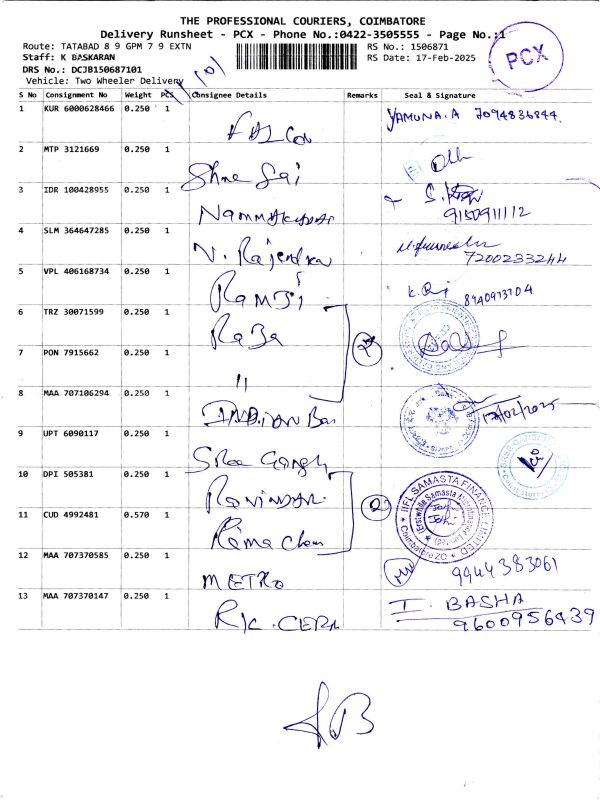 THE PROFESSIONAL COURIERS, COIMBATORE
Delivery Runsheet - PCX - Phone No.:0422-3505555 - Page No.:1
Route: TATABAD 8 9 GPM 7 9 EXTN RS No.: 1506871
Staff: K BASKARAN RS Date: 17-Feb-2025
DRS No.: DCJB150687101
Vehicle: Two Wheeler Delivery
PCX
S No Consignment No Weight PCS Consignee Details Remarks Seal & Signature
1 KUR 6000628466 0.250 1 FALCON YAMUNA.A 7094836844.
2 MTP 3121669 0.250 1 Shree Sai
3 IDR 100428955 0.250 1 9150911112
4 SLM 364647285 0.250 1 N. Rajendran 7200233244
5 VPL 406168734 0.250 1 RAMJi K. Raj 8940973704
6 TRZ 30071599 0.250 1 RaJa
7 PON 7915662 0.250 1 "
8 MAA 707106294 0.250 1 INDIAN Ban 17/02/2025
9 UPT 6090117 0.250 1 Sree Ganesh
10 DPI 505381 0.250 1 RAVINDAR. 2
11 CUD 4992481 0.570 1 Rama Chan
IIFL SAMASTA FINANCE LIMITED
Coimbatore ZO
12 MAA 707370585 0.250 1 METRO 9944383061
13 MAA 707370147 0.250 1 R/C. CERA I. BASHA
9600956939